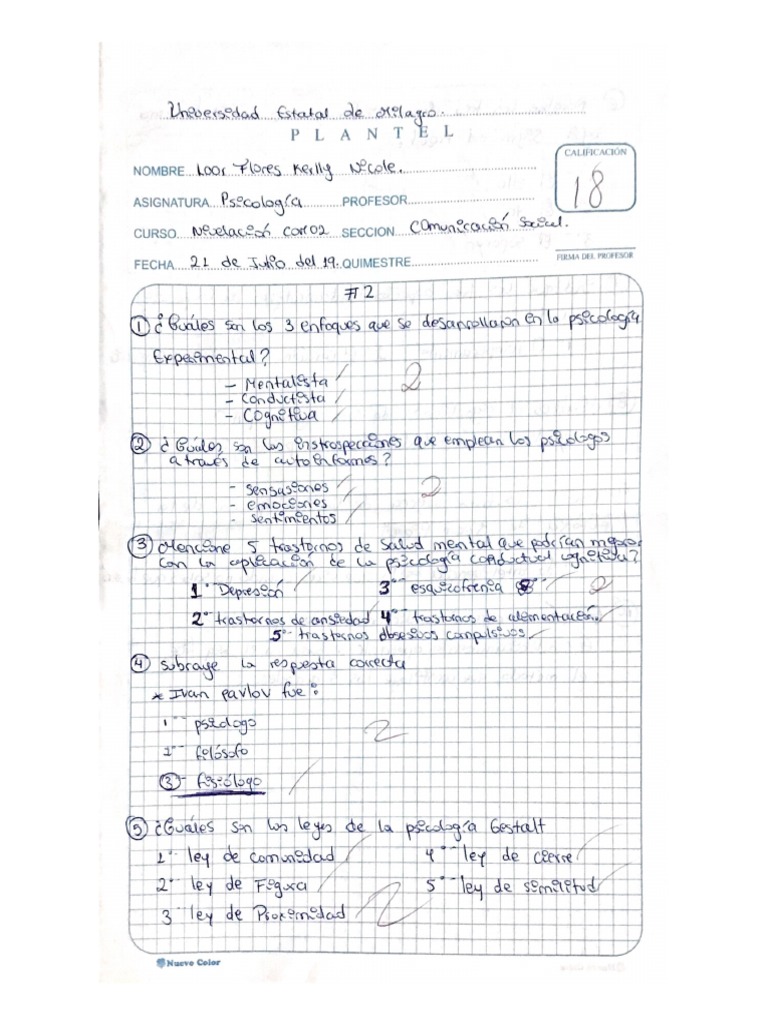 Universidad Estatal de Milagro.
PLANTEL
NOMBRE Loor Flores Kerlly Nicole. CALIFICACIÓN
18
ASIGNATURA Psicología PROFESOR
CURSO Nivelación Cor02 SECCION Comunicación Social.
FECHA 21 de Julio del 19. QUIMESTRE FIRMA DEL PROFESOR
#2
① ¿Cuáles son los 3 enfoques que se desarrollaron en la psicología
Experimental?
- Mentalista
- Conductista
- Cognitiva
2
② ¿Cuáles son las instrospecciones que emplean los psicólogos
a través de autoinformes?
- sensasiones
- emociones
- sentimientos
2
③ Mencione 5 trastornos de salud mental que podrían mejorar
con la aplicación de la psicología conductual cognitiva?
1° Depresión 3° esquizofrenia 2
2° trastornos de ansiedad 4° trastornos de alimentación.
5° trastornos obsesivos compulsivos
④ Subraye la respuesta correcta
* Ivan Pavlov fue:
1°- psicólogo
2°- filósofo
③- fisiólogo
2
⑤ ¿Cuáles son las leyes de la psicología Gestalt
1° ley de comunidad 4° ley de cierre
2° ley de Figura 5° ley de similitud
3° ley de Proximidad 2
Nuevo Color